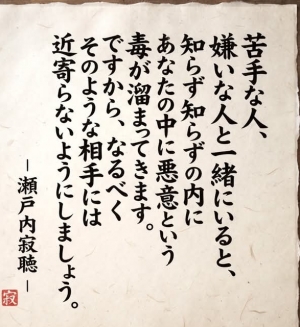 苦手な人、
嫌いな人と一緒にいると、
知らず知らずの内に
あなたの中に悪意という
毒が溜まってきます。
ですから、なるべく
そのような相手には
近寄らないようにしましょう。
－瀬戸内寂聴－
寂